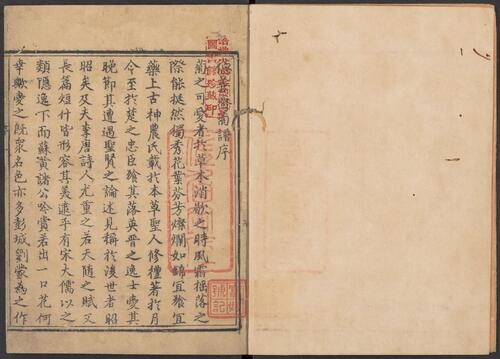 菊之可愛者於草木消歇之時風霜揺落之
際能挺然獨秀花葉芬芳燦爛如錦宜飱宜
藥上古神農氏載於本草聖人修禮著於月
令至於楚之忠臣飱其落英晋之逸士愛其
晚節其遭遇聖賢之論述見稱於後世者昭
昭矣及夫李唐詩人尤重之若天随之賦又
長篇短什皆形容其美逮乎有宋大儒以之
類隠逸下而蘇黄諸公吟賞若出一口花何
幸歟愛之既衆名色亦多彭城劉蒙為之作